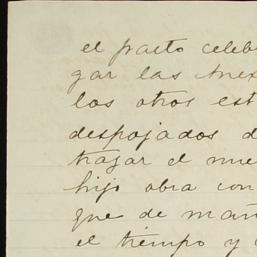 el pacto celeb
gar las
los otros est
despojados d
tragar el nue
hijo obra con
que de mañ
el tiempo y